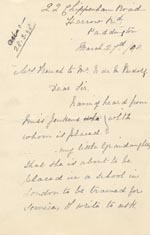 22 Chippenham Road
Harrow Rd
Paddington
March 27th
to Mr. E de M Rudolf
Dear Sir,
Having heard from
Miss Jenkins with
whom is placed
my little Grandaughter
that she is about to be
placed in a school in
London to be trained for
Service, I write to ask